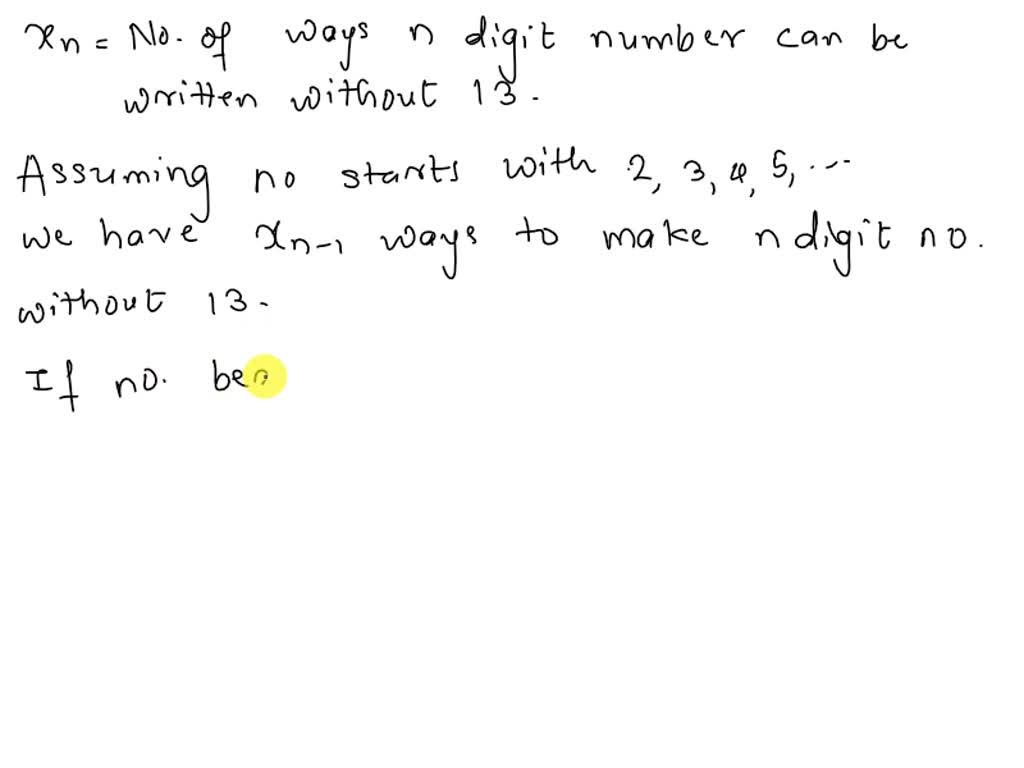 xn = No. of ways n digit number can be
written without 13.
Assuming no starts with 2, 3, 4, 5, ...
we have xn-1 ways to make n digit no.
without 13.
If no.